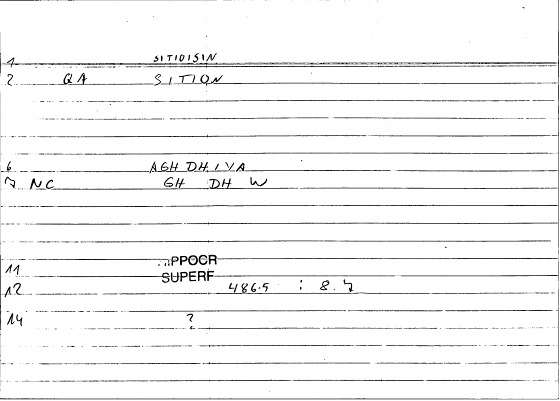 1 SITIDISIN
2 QA SITION
6 AGH DH IVA
7 NC GH DH W
11 PPOCR
SUPERF
12 486.5 : 8.7
14 ?